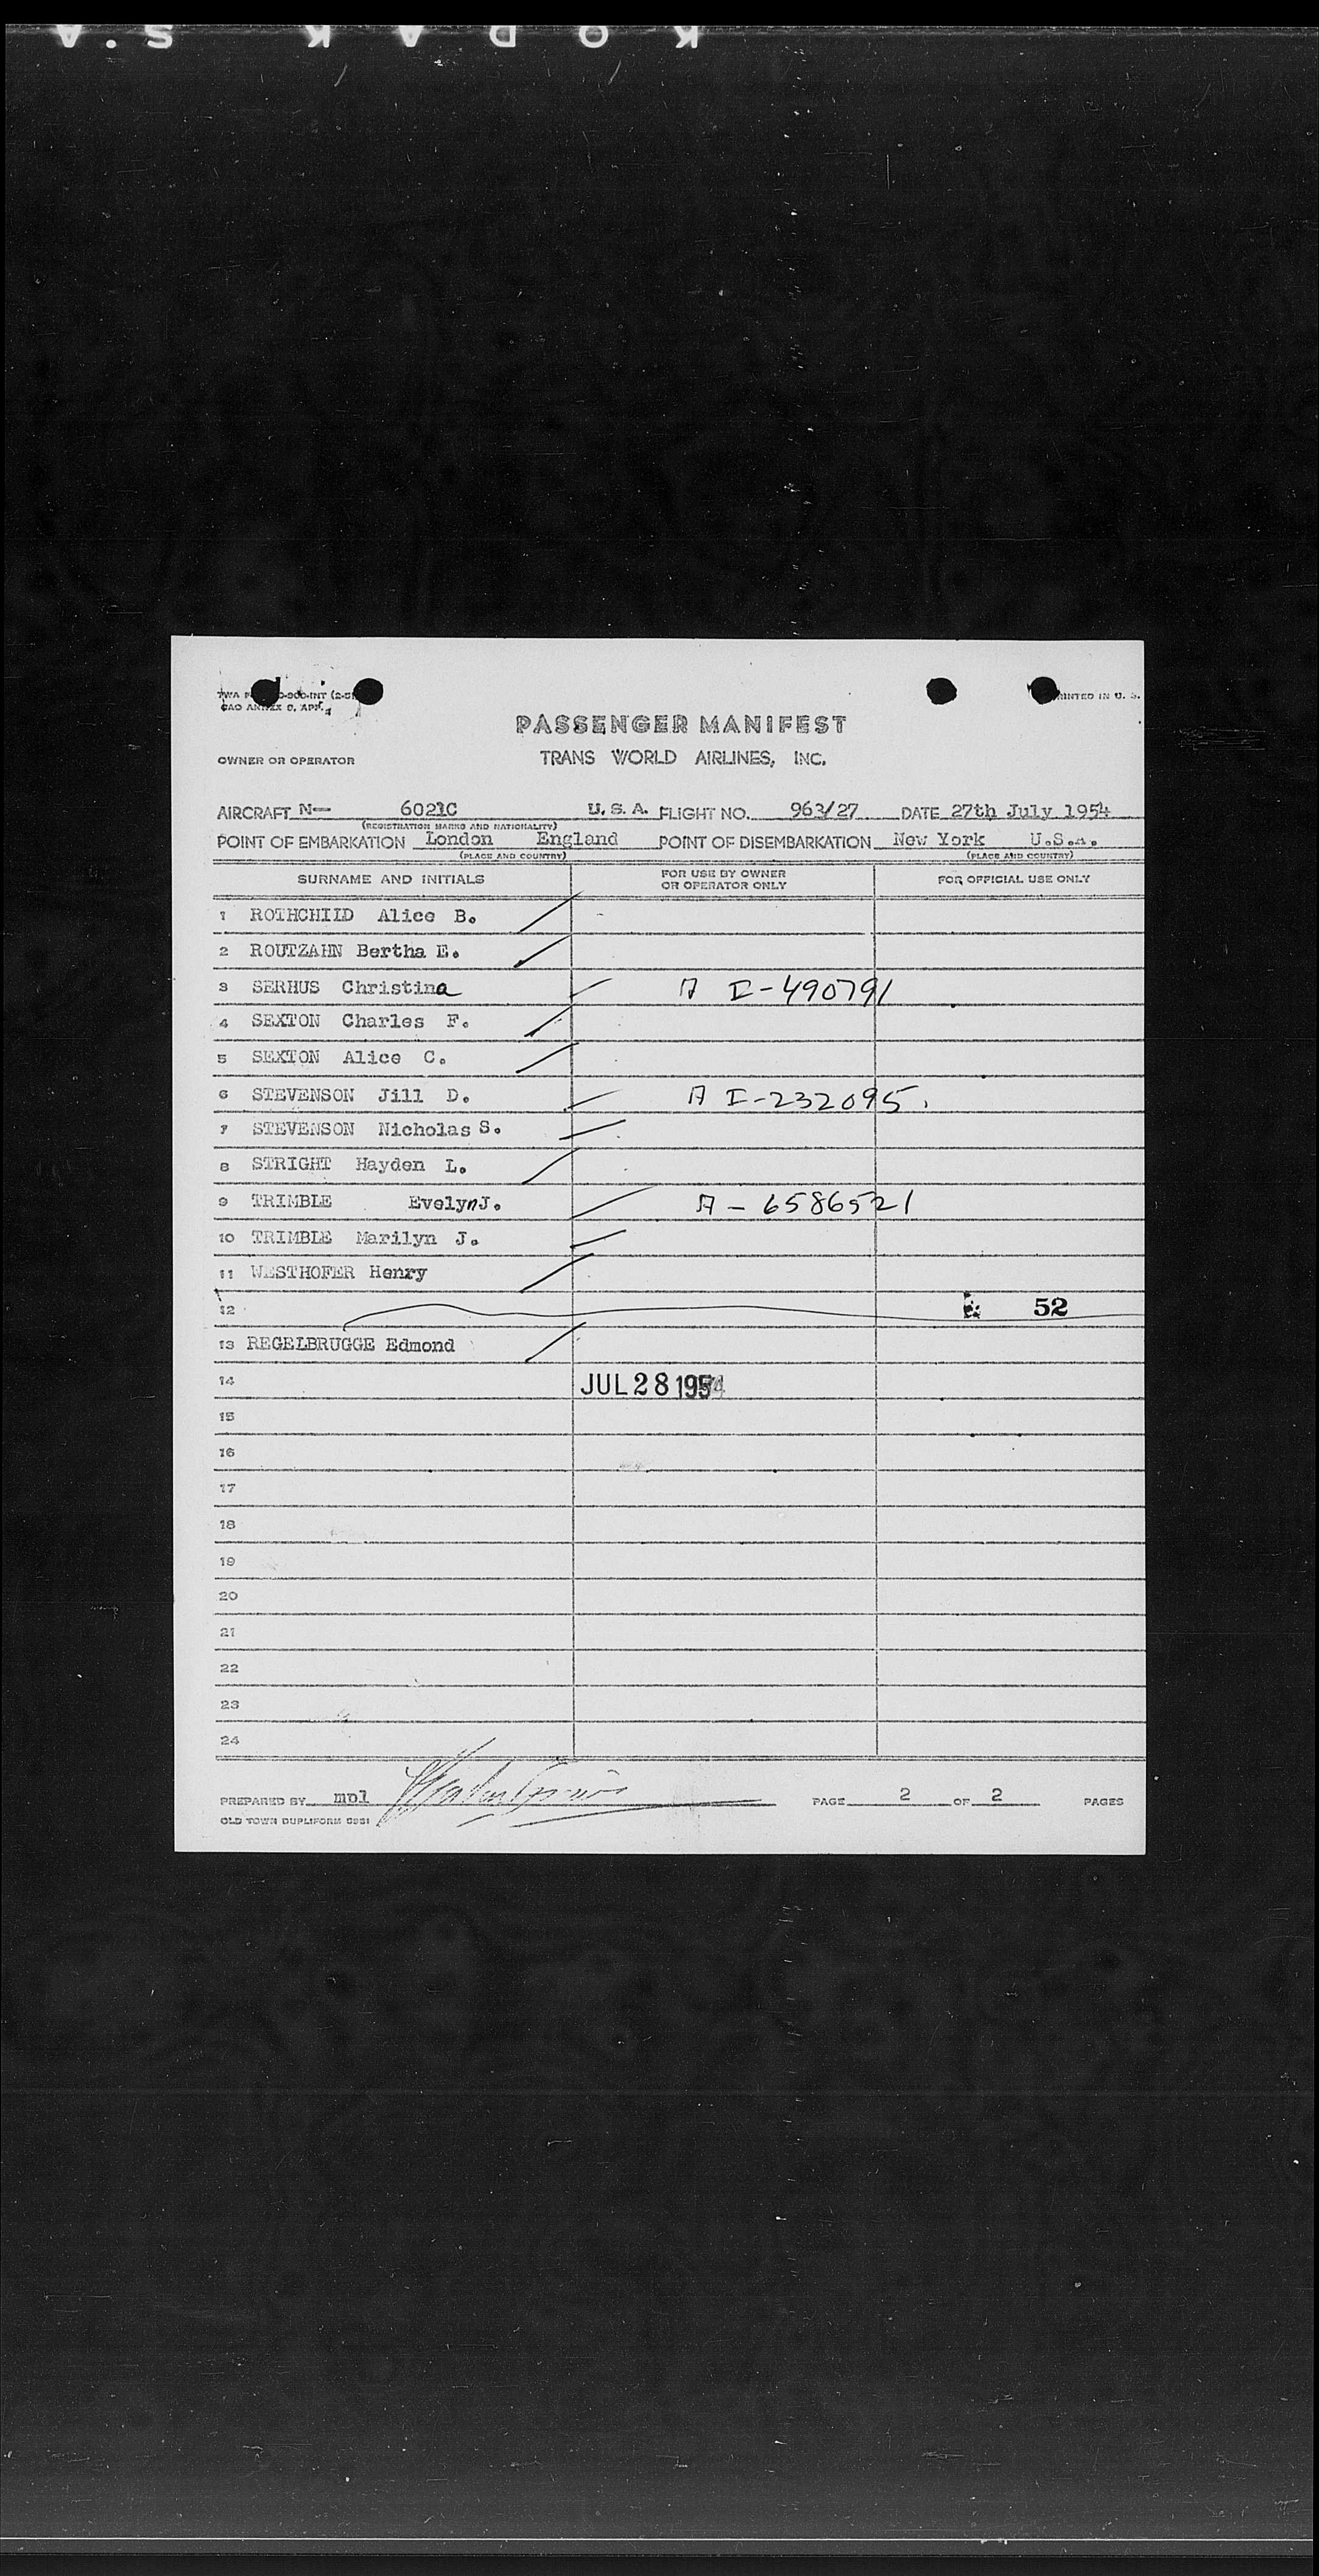 KODAK S.A
TWA F 0-900-INT (2-51
CAO ANNEX 9, APP. 4
PRINTED IN U. S.
PASSENGER MANIFEST
OWNER OR OPERATOR TRANS WORLD AIRLINES, INC.
AIRCRAFT N— 6021C U. S. A. FLIGHT NO. 963/27 DATE 27th July 1954
(REGISTRATION MARKS AND NATIONALITY)
POINT OF EMBARKATION London England POINT OF DISEMBARKATION New York U.S.A.
(PLACE AND COUNTRY) (PLACE AND COUNTRY)
SURNAME AND INITIALS FOR USE BY OWNER OR OPERATOR ONLY FOR OFFICIAL USE ONLY
1 ROTHCHILD Alice B.
2 ROUTZAHN Bertha E.
3 SERHUS Christina A I-490791
4 SEXTON Charles F.
5 SEXTON Alice C.
6 STEVENSON Jill D. A I-232095.
7 STEVENSON Nicholas S.
8 STRIGHT Hayden L.
9 TRIMBLE Evelyn J. A - 6586521
10 TRIMBLE Marilyn J.
11 WESTHOFER Henry
12 52
13 REGELBRUGGE Edmond
14 JUL 28 1954
15
16
17
18
19
20
21
22
23
24
PREPARED BY mpl PAGE 2 OF 2 PAGES
OLD TOWN DUPLIFORM